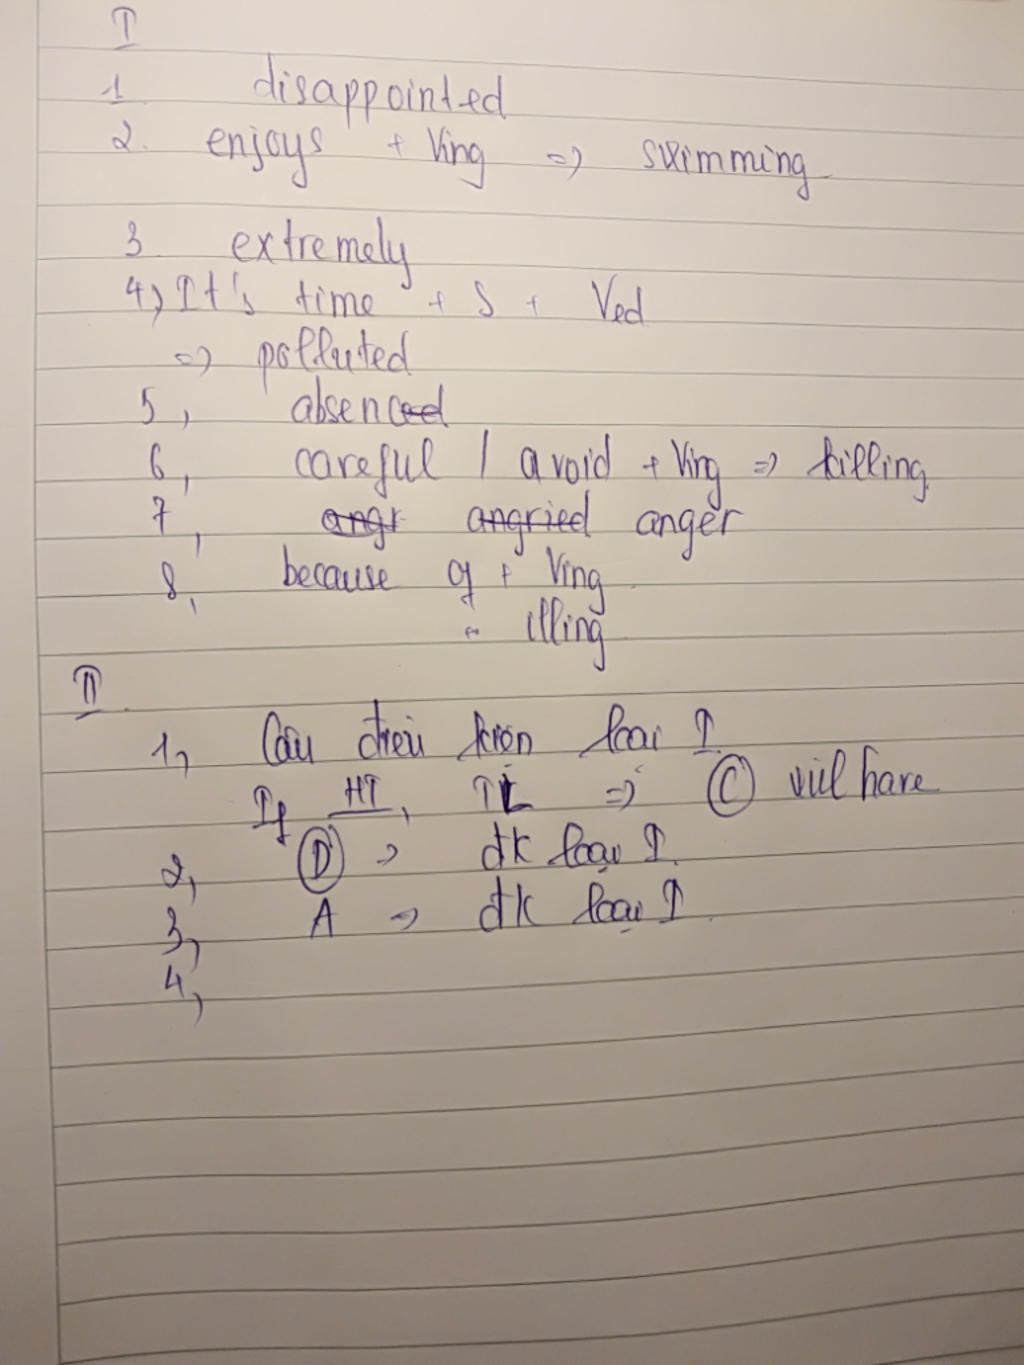 I
1 disappointed
2. enjoys + Ving => swimming
3 extremely
4, It's time + S + Ved
=> polluted
5, absenced
6, careful / avoid + Ving => killing
7, angr angried anger
8, because of + Ving
illing
II.
1, Câu điều kiện loại I
If HT, TL => C will have
2, D => đk loại I.
3, A => đk loại I.
4,